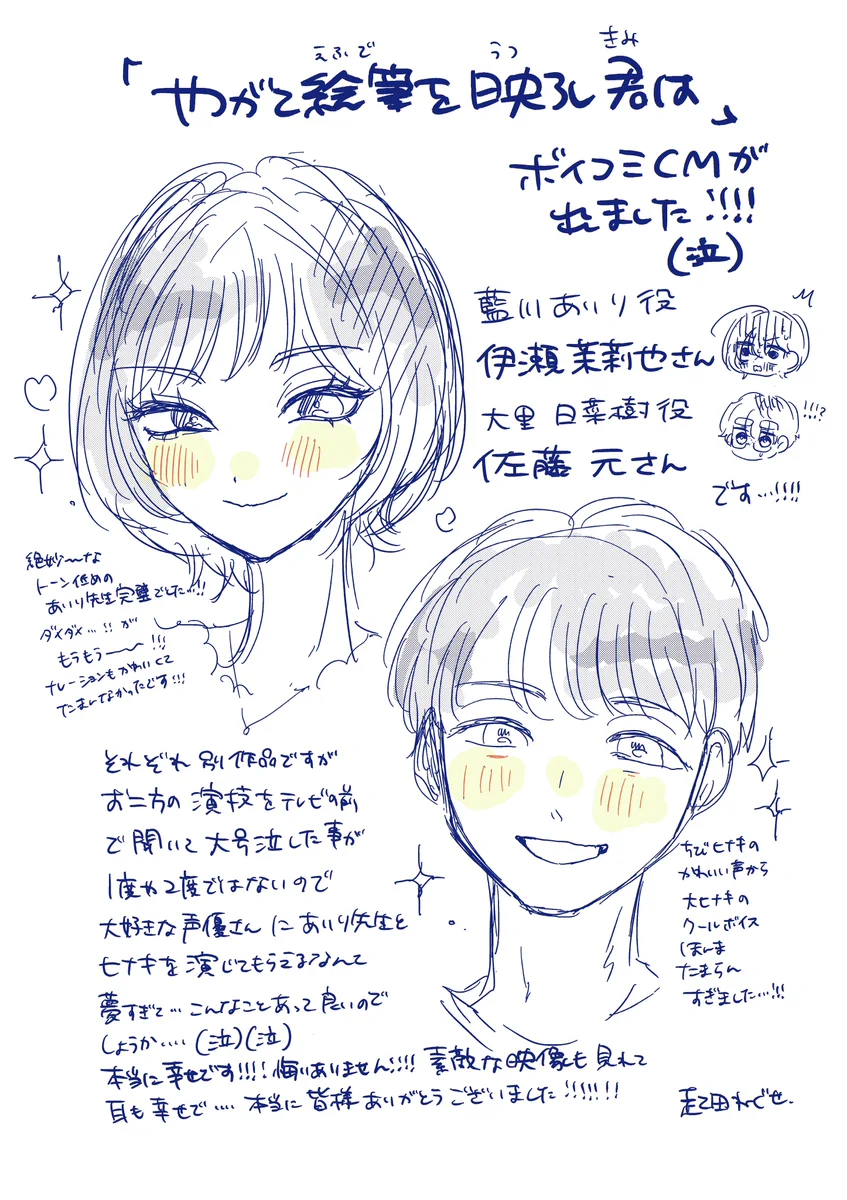 えふで うつ きみ
「やがて絵筆を映ろし君は」
ボイコミCMが
れました!!!!
(泣)
藍川あいり役
伊瀬茉莉也さん
大里 日菜樹役
!!!?
佐藤 元さん
です…!!!!
絶妙〜な
トーン低めの
あいり先生完璧でした…!!
ダメダメ…!!が
もうもう〜!!!
ナレーションもかわいくて
たまんなかったです!!!
それぞれ別作品ですが
お二方の演技をテレビの前
で聞いて大号泣した事が
1度や2度ではないので
大好きな声優さんにあいり先生と
ヒナキを演じてもらえるなんて
夢すぎて…こんなことあって良いので
しょうか….(泣)(泣)
本当に幸せです!!!!悔いありません!!!!素敵な映像も見れて
耳も幸せで….本当に皆様ありがとうございました!!!!!!
ちびヒナキの
かわいい声から
大ヒナキの
クールボイス
ほんま
たまらん
すぎました…!!!